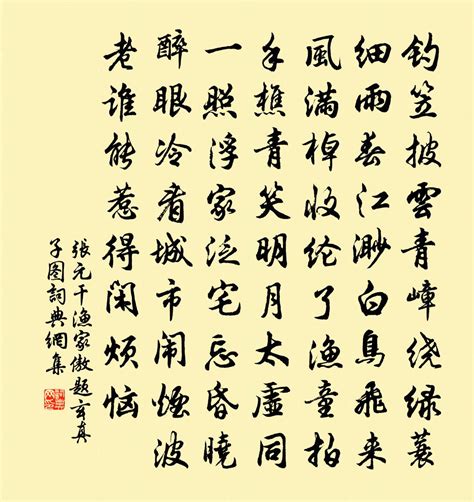 钓笠披雲青嶂绕绿蓑
细雨春江渺白鳥飛来
風满棹收纶了漁童拍
手樵青笑明月太虚同
一照浮家泛宅忘昏曉
醉眼冷看城市闹煙波
老谁能惹得闲烦恼
張元干漁家傲題玄真
子图詞典網集